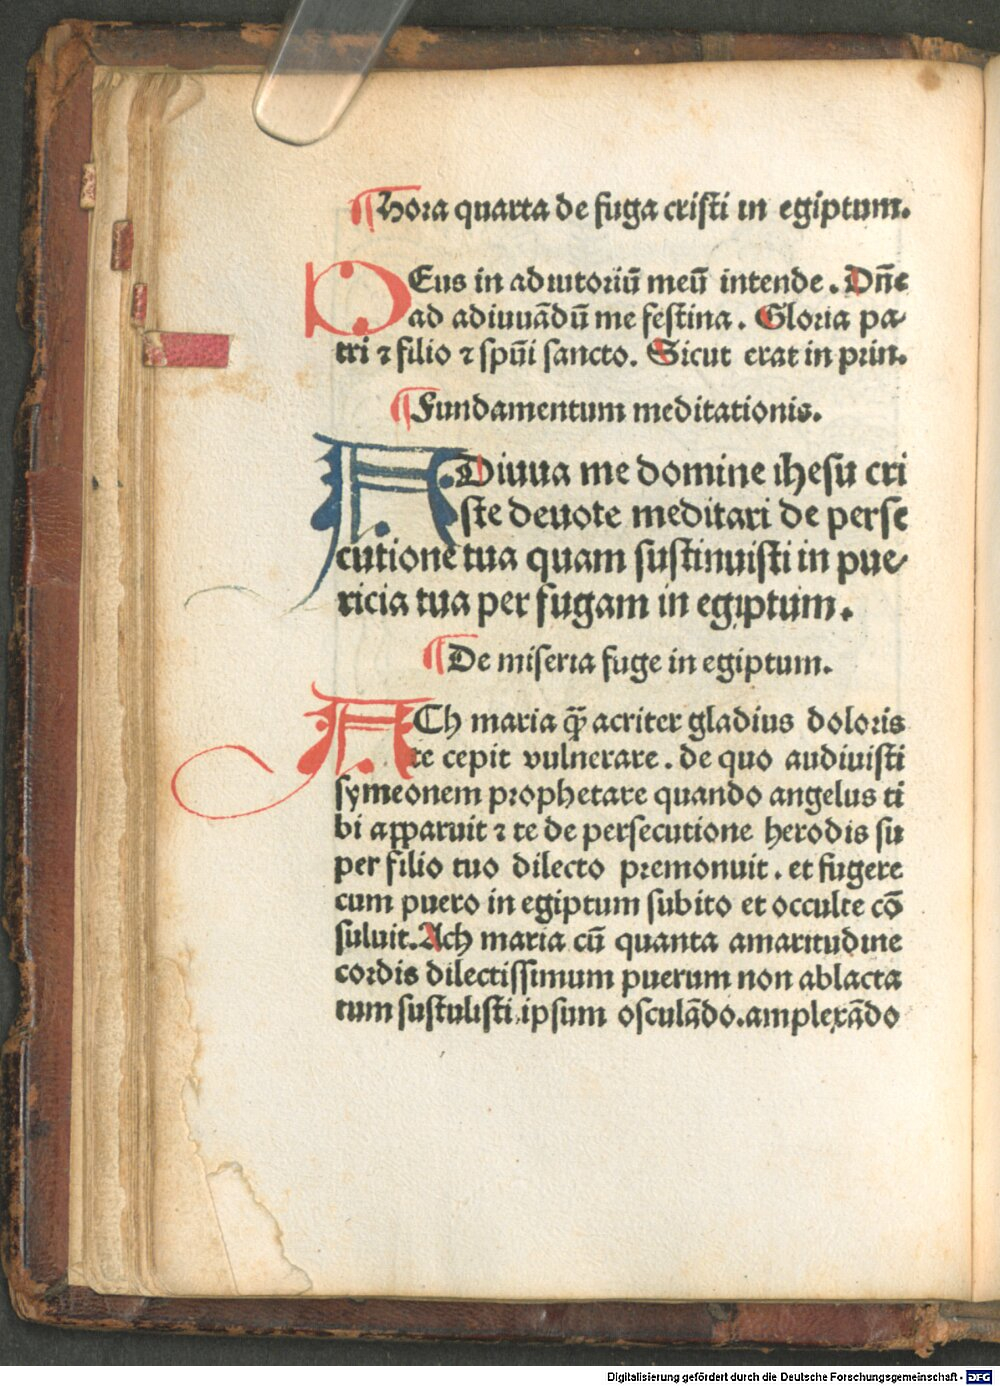 ¶Hora quarta de fuga cristi in egiptum.
DEus in adiutoriū meū intende. Dn̄e
ad adiuuādū me festina. Gloria pa-
tri ⁊ filio ⁊ spūi sancto. Sicut erat in prin.
¶Fundamentum meditationis.
ADiuua me domine ihesu cri
ste deuote meditari de perse
cutione tua quam sustinuisti in pue-
ricia tua per fugam in egiptum.
¶De miseria fuge in egiptum.
ACh maria q̄ȝ acriter gladius doloris
te cepit vulnerare. de quo audiuisti
symeonem prophetare quando angelus ti
bi apparuit ⁊ te de persecutione herodis su
per filio tuo dilecto premonuit. et fugere
cum puero in egiptum subito et occulte cō
suluit. Ach maria cū quanta amaritudine
cordis dilectissimum puerum non ablacta
tum sustulisti.ipsum osculādo.amplexādo
Digitalisierung gefördert durch die Deutsche Forschungsgemeinschaft - DFG